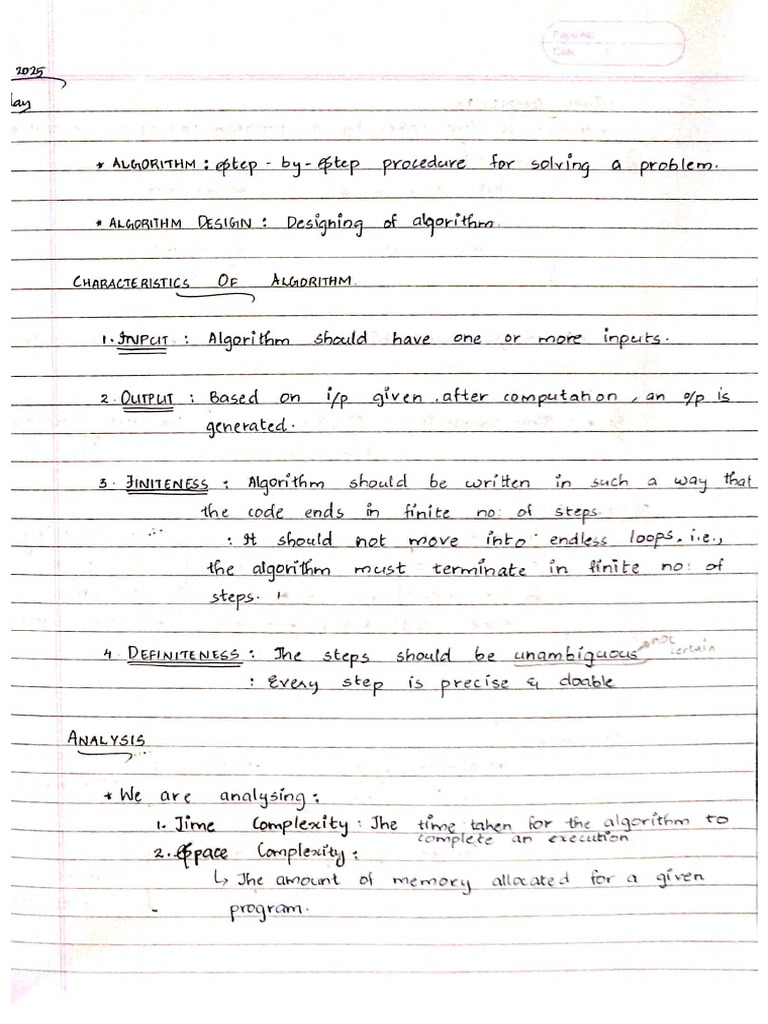 Page No.
Date
2025
lay
* ALGORITHM : Step - by - Step procedure for solving a problem.
* ALGORITHM DESIGN : Designing of algorithm.
CHARACTERISTICS OF ALGORITHM.
1. INPUT : Algorithm should have one or more inputs.
2. OUTPUT : Based on i/p given, after computation, an o/p is
generated.
3. FINITENESS : Algorithm should be written in such a way that
the code ends in finite no: of steps.
: It should not move into endless loops, i.e.,
the algorithm must terminate in finite no: of
steps.
4. DEFINITENESS : The steps should be unambiguous not certain
: Every step is precise & doable
ANALYSIS
* We are analysing :
1. Time Complexity : The time taken for the algorithm to
complete an execution
2. Space Complexity :
↳ The amount of memory allocated for a given
program.